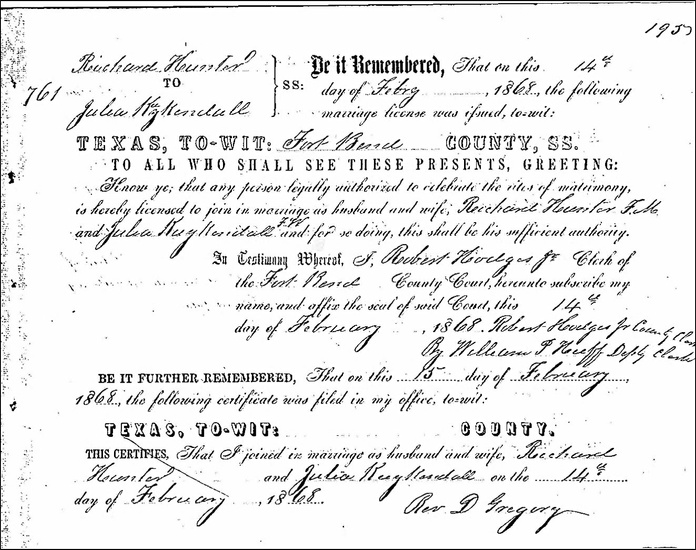 195
Richard Hunter
TO
Julia Kuykendall
761
SS:
Be it Remembered, That on this 14th
day of Feby, 1868, the following
marriage license was issued, to-wit:
TEXAS, TO-WIT: Fort Bend COUNTY, SS.
TO ALL WHO SHALL SEE THESE PRESENTS, GREETING:
Know ye; that any person legally authorized to celebrate the rites of matrimony,
is hereby licensed to join in marriage as husband and wife, Richard Hunter F.M.
and Julia Kuykendall F.W. and for so doing, this shall be his sufficient authority.
In Testimony Whereof, I, Robert Hodges Jr Clerk of
the Fort Bend County Court, hereunto subscribe my
name, and affix the seal of said Court, this 14th
day of February, 1868. Robert Hodges Jr County Clerk
By William P. Huff Depty Clerk
BE IT FURTHER REMEMBERED, That on this 15 day of February
1868, the following certificate was filed in my office, to-wit:
TEXAS, TO-WIT: COUNTY.
THIS CERTIFIES, That I joined in marriage as husband and wife, Richard
Hunter and Julia Kuykendall on the 14th
day of February, 1868.
Rev. D Gregory